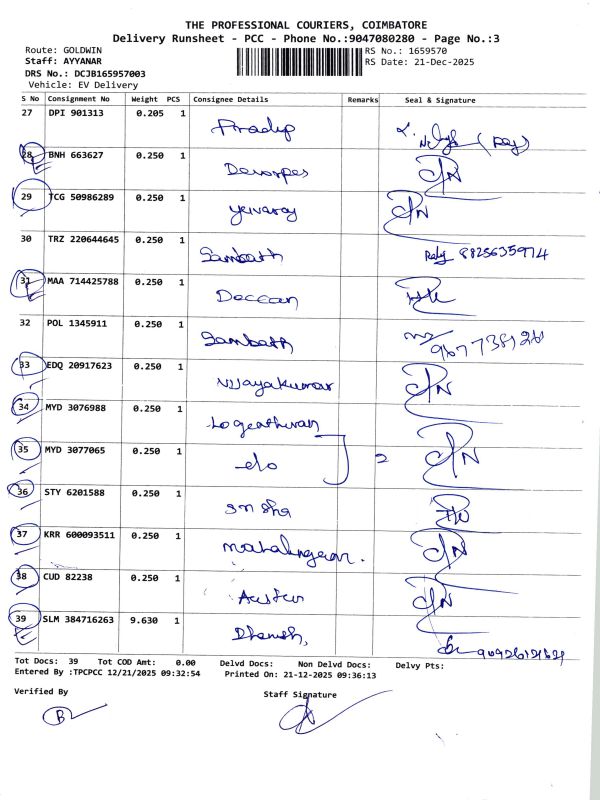 THE PROFESSIONAL COURIERS, COIMBATORE
Delivery Runsheet - PCC - Phone No.:9047080280 - Page No.:3
Route: GOLDWIN
Staff: AYYANAR
DRS No.: DCJB165957003
Vehicle: EV Delivery
RS No.: 1659570
RS Date: 21-Dec-2025
S No Consignment No Weight PCS Consignee Details Remarks Seal & Signature
27 DPI 901313 0.205 1 Pradip
28 BNH 663627 0.250 1
29 TCG 50986289 0.250 1 yuvaraj
30 TRZ 220644645 0.250 1 Sambath 8825635974
31 MAA 714425788 0.250 1 Deccan
32 POL 1345911 0.250 1 Sambath
33 EDQ 20917623 0.250 1 Vijayakumar
34 MYD 3076988 0.250 1
35 MYD 3077065 0.250 1 do 2
36 STY 6201588 0.250 1
37 KRR 600093511 0.250 1
38 CUD 82238 0.250 1
39 SLM 384716263 9.630 1
Tot Docs: 39 Tot COD Amt: 0.00 Delvd Docs: Non Delvd Docs: Delvy Pts:
Entered By :TPCPCC 12/21/2025 09:32:54 Printed On: 21-12-2025 09:36:13
Verified By Staff Signature
B